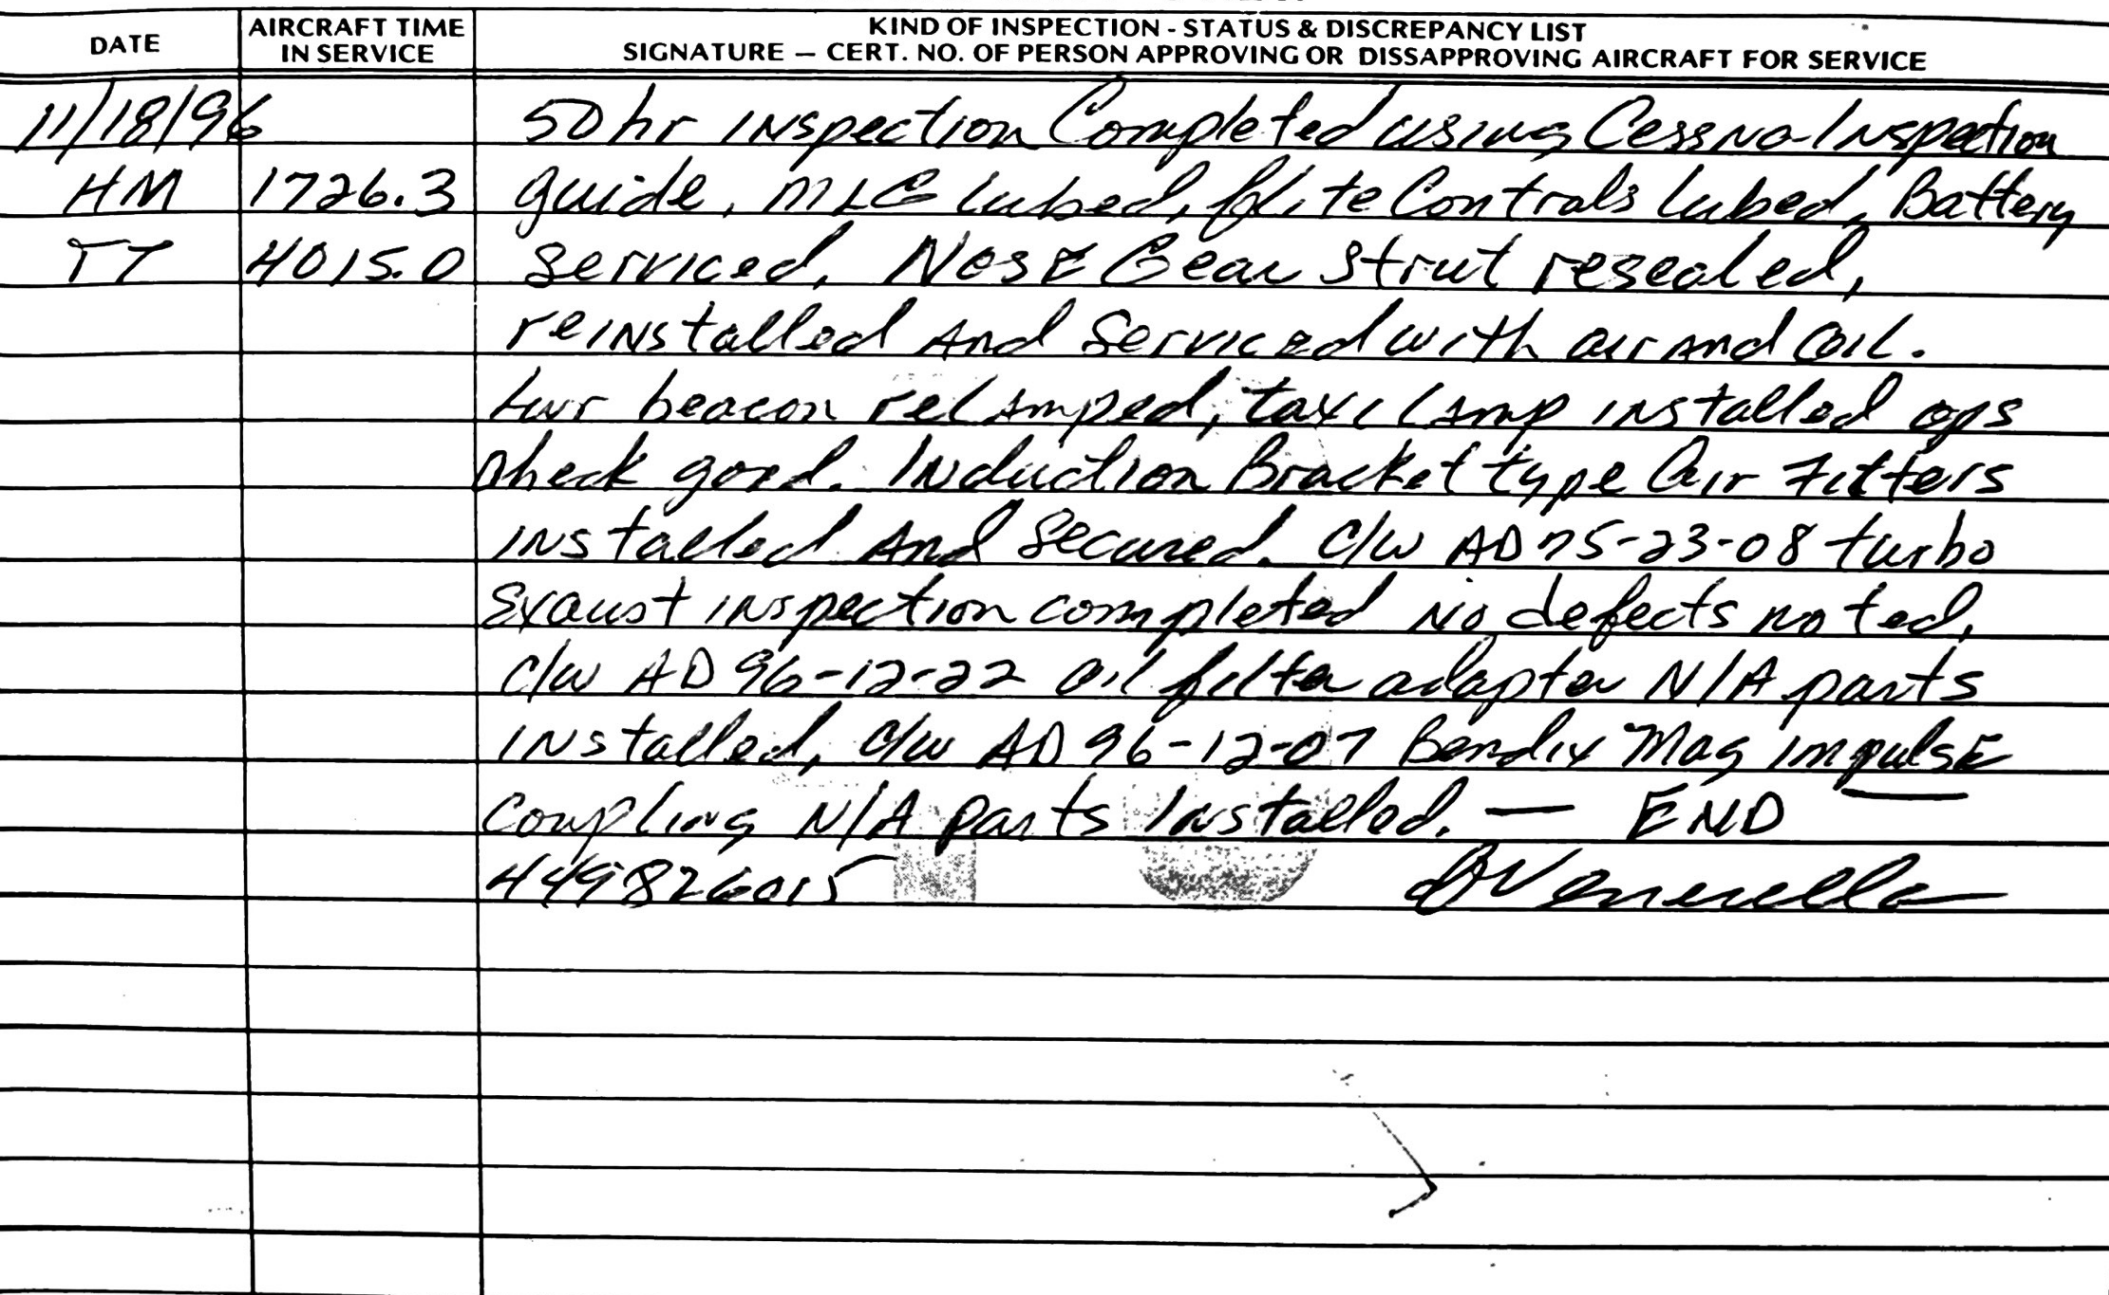 DATE
AIRCRAFT TIME
IN SERVICE
KIND OF INSPECTION - STATUS & DISCREPANCY LIST
SIGNATURE — CERT. NO. OF PERSON APPROVING OR DISSAPPROVING AIRCRAFT FOR SERVICE
11/18/96 50 hr Inspection Completed using Cessna Inspection
HM 1726.3 guide, MLG lubed, flite Controls lubed, Battery
TT 4015.0 serviced, Nose Gear Strut resealed,
reinstalled and Serviced with air and oil.
Lwr beacon relamped, taxi lamp installed ops
check good. Induction Bracket type Air Filters
installed And Secured. C/W AD 75-23-08 turbo
Exaust inspection completed No defects noted,
c/w AD 96-12-22 oil filter adapter N/A parts
installed, c/w AD 96-12-07 Bendix Mag impulse
Coupling N/A parts Installed. — END
449826015